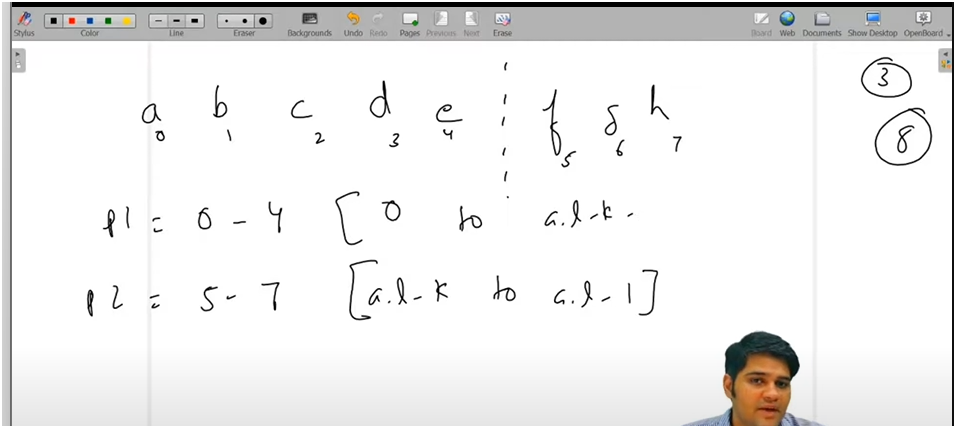 Stylus Color Line Eraser Backgrounds Undo Redo Pages Previous Next Erase Board Web Documents Show Desktop OpenBoard
3
a b c d e f g h
0 1 2 3 4 5 6 7
8
p1 = 0 - 4 [ 0 to a.l-k-
p2 = 5 - 7 [a.l-k to a.l-1]